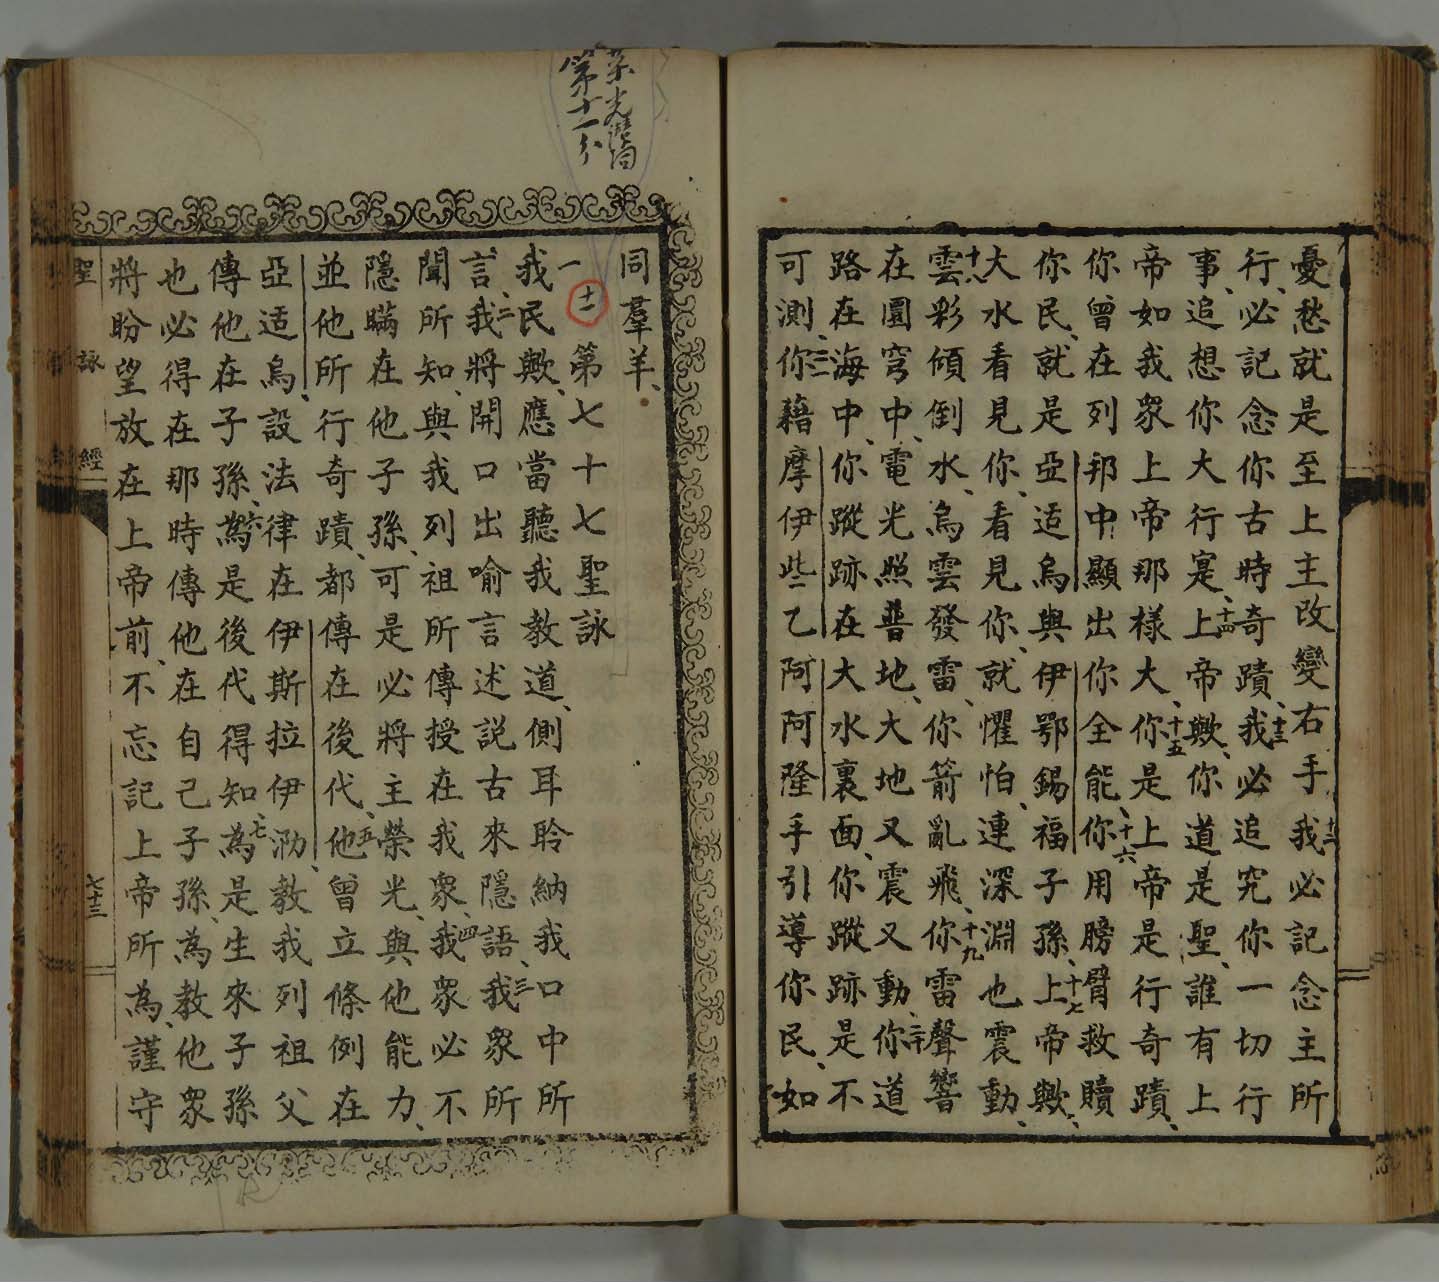 憂愁就是至上主改變右手十二我必記念主所
行、必記念你古時奇蹟、十三我必追究你一切行
事、追想你大行寔、十四上帝歟、你道是聖、誰有上
帝如我衆上帝那樣大、十五你是上帝是行奇蹟、
你曾在列邦中顯出你全能、十六你用膀臂救贖
你民、就是亞适烏與伊鄂錫福子孫、十七上帝歟、
大水看見你、看見你、就懼怕、連深淵也震動、
十八雲彩傾倒水、烏雲發雷、你箭亂飛、十九你雷聲響
在圜穹中、電光照普地、大地又震又動、二十你道
路在海中、你蹤跡在大水裏面、你蹤跡是不
可測、二一你藉摩伊些乙阿阿隆手引導你民、如
同羣羊、
榮光讚詞
第十一分
十一
第七十七聖詠
一我民歟、應當聽我教道、側耳聆納我口中所
言、二我將開口出喻言述説古來隱語、三我衆所
聞所知、與我列祖所傳授在我衆、四我衆必不
隱瞞在他子孫、可是必將主榮光、與他能力、
並他所行奇蹟、都傳在後代、五他曾立條例在
亞适烏、設法律在伊斯拉伊泐、教我列祖父
傳他在子孫、六為是後代得知、七為是生來子孫
也必得在那時傳他在自己子孫、為教他衆
將盼望放在上帝前、不忘記上帝所為、謹守
聖詠經
七十三